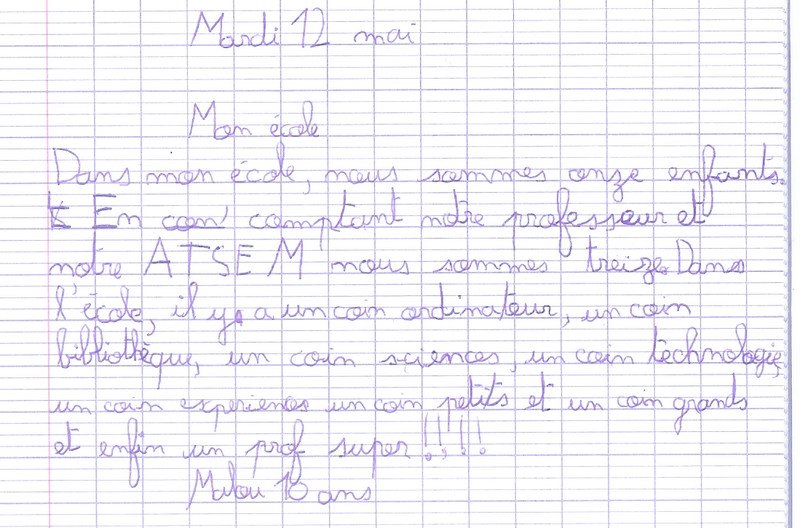 Mardi 12 mai
Mon école
Dans mon école, nous sommes onze enfants.
En com comptant notre professeur et
notre ATSEM nous sommes treize. Dans
l'école, il y a un coin ordinateur, un coin
bibliothèque, un coin sciences, un coin technologie,
un coin experiences un coin petits et un coin grands
et enfin un prof super !!!!!
Malou 18 ans